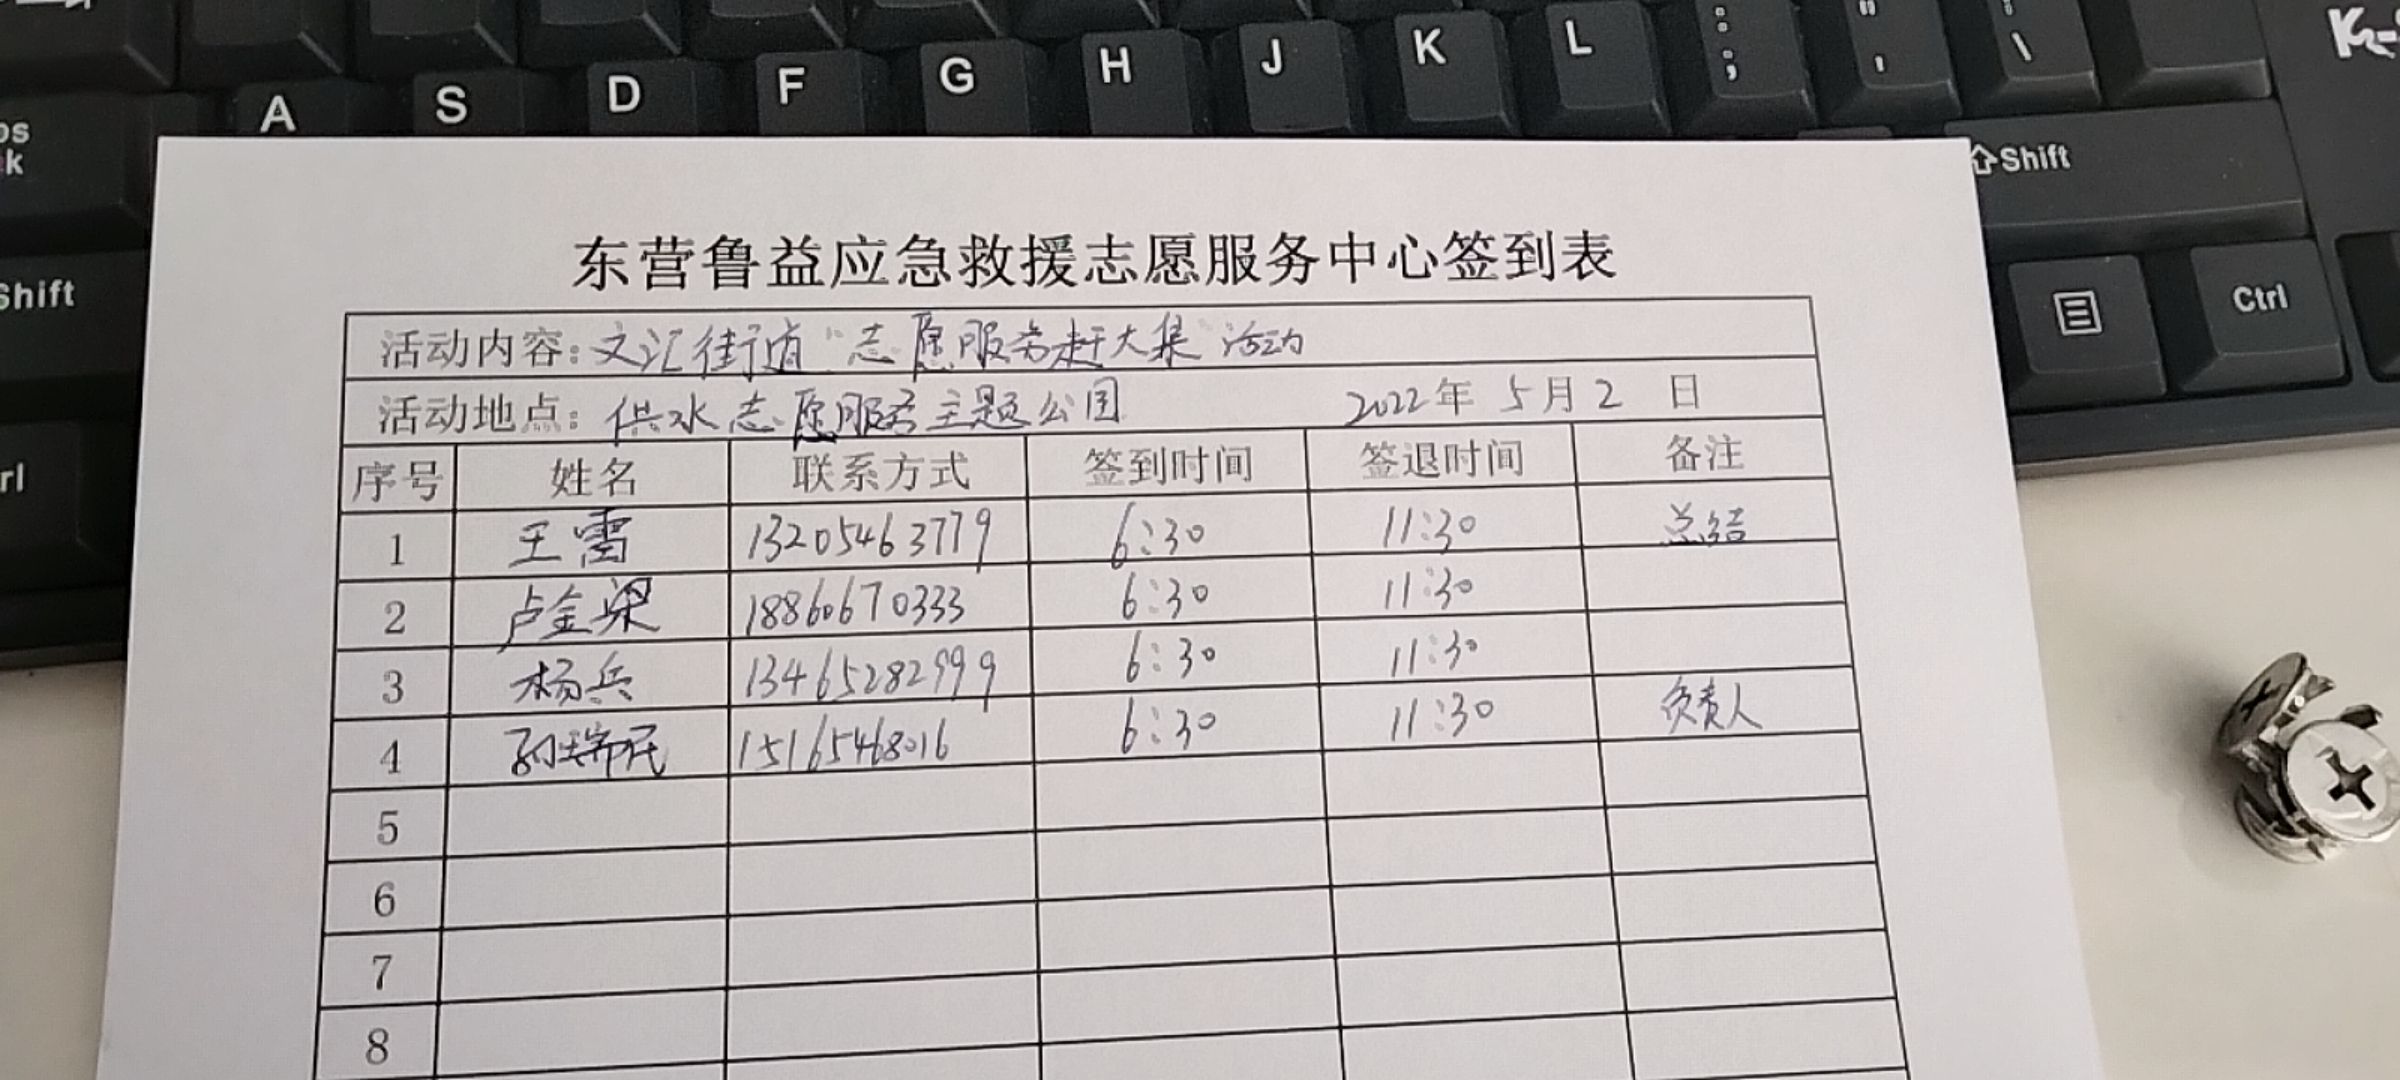 A S D F G H J K L : ; " ' \
K-
ps
k
Shift
Shift
Ctrl
rl
东营鲁益应急救援志愿服务中心签到表
活动内容:文汇街道志愿服务赶大集活动
活动地点:供水志愿服务主题公园 2022年5月2日
序号 姓名 联系方式 签到时间 签退时间 备注
1 王雷 13205463779 6:30 11:30 总结
2 卢金梁 18860670333 6:30 11:30
3 杨兵 13465282999 6:30 11:30
4 孙瑞民 15165468016 6:30 11:30 负责人
5
6
7
8